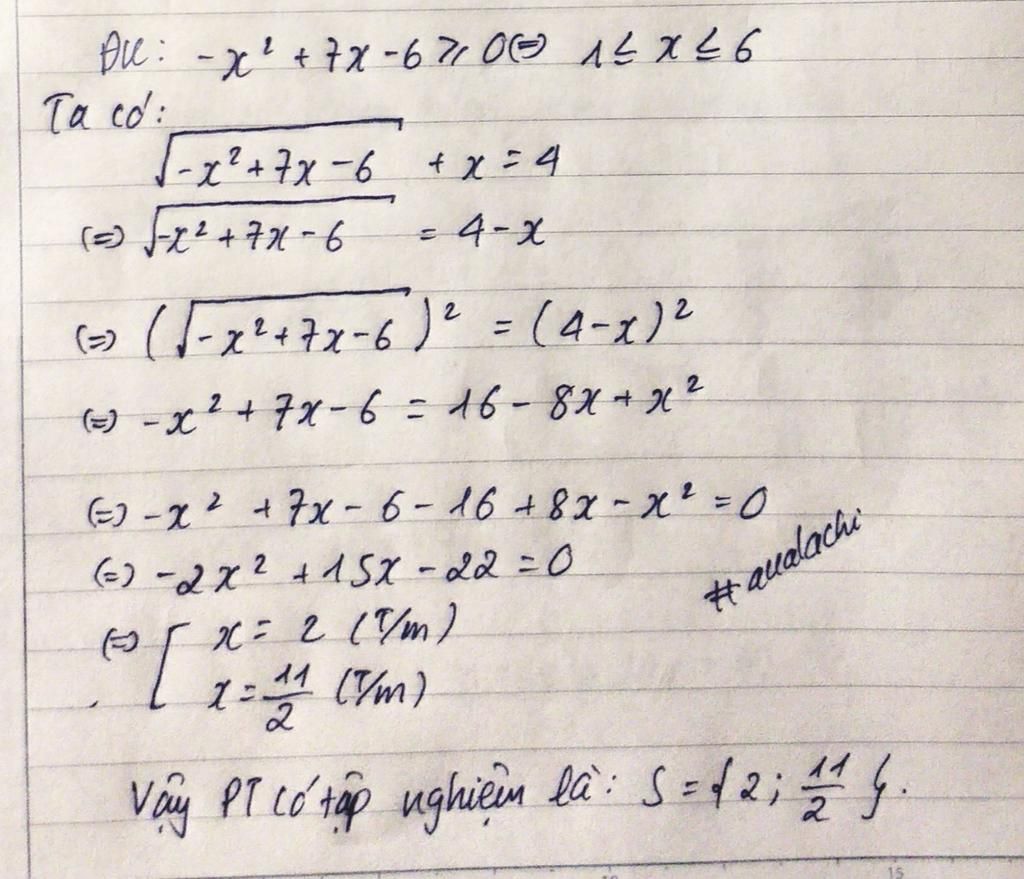 ĐK: -x² + 7x - 6 ≥ 0 (=) 1 ≤ x ≤ 6
Ta có:
√(-x² + 7x - 6) + x = 4
(=) √(-x² + 7x - 6) = 4 - x
(=) (√(-x² + 7x - 6))² = (4 - x)²
(=) -x² + 7x - 6 = 16 - 8x + x²
(=) -x² + 7x - 6 - 16 + 8x - x² = 0
(=) -2x² + 15x - 22 = 0
#audachi
(=) [ x = 2 (T/m)
x = 11/2 (T/m)
Vậy PT có tập nghiệm là: S = { 2; 11/2 }.
15